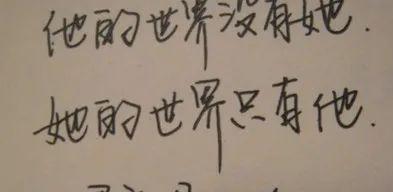 他的世界没有她.
她的世界只有他.